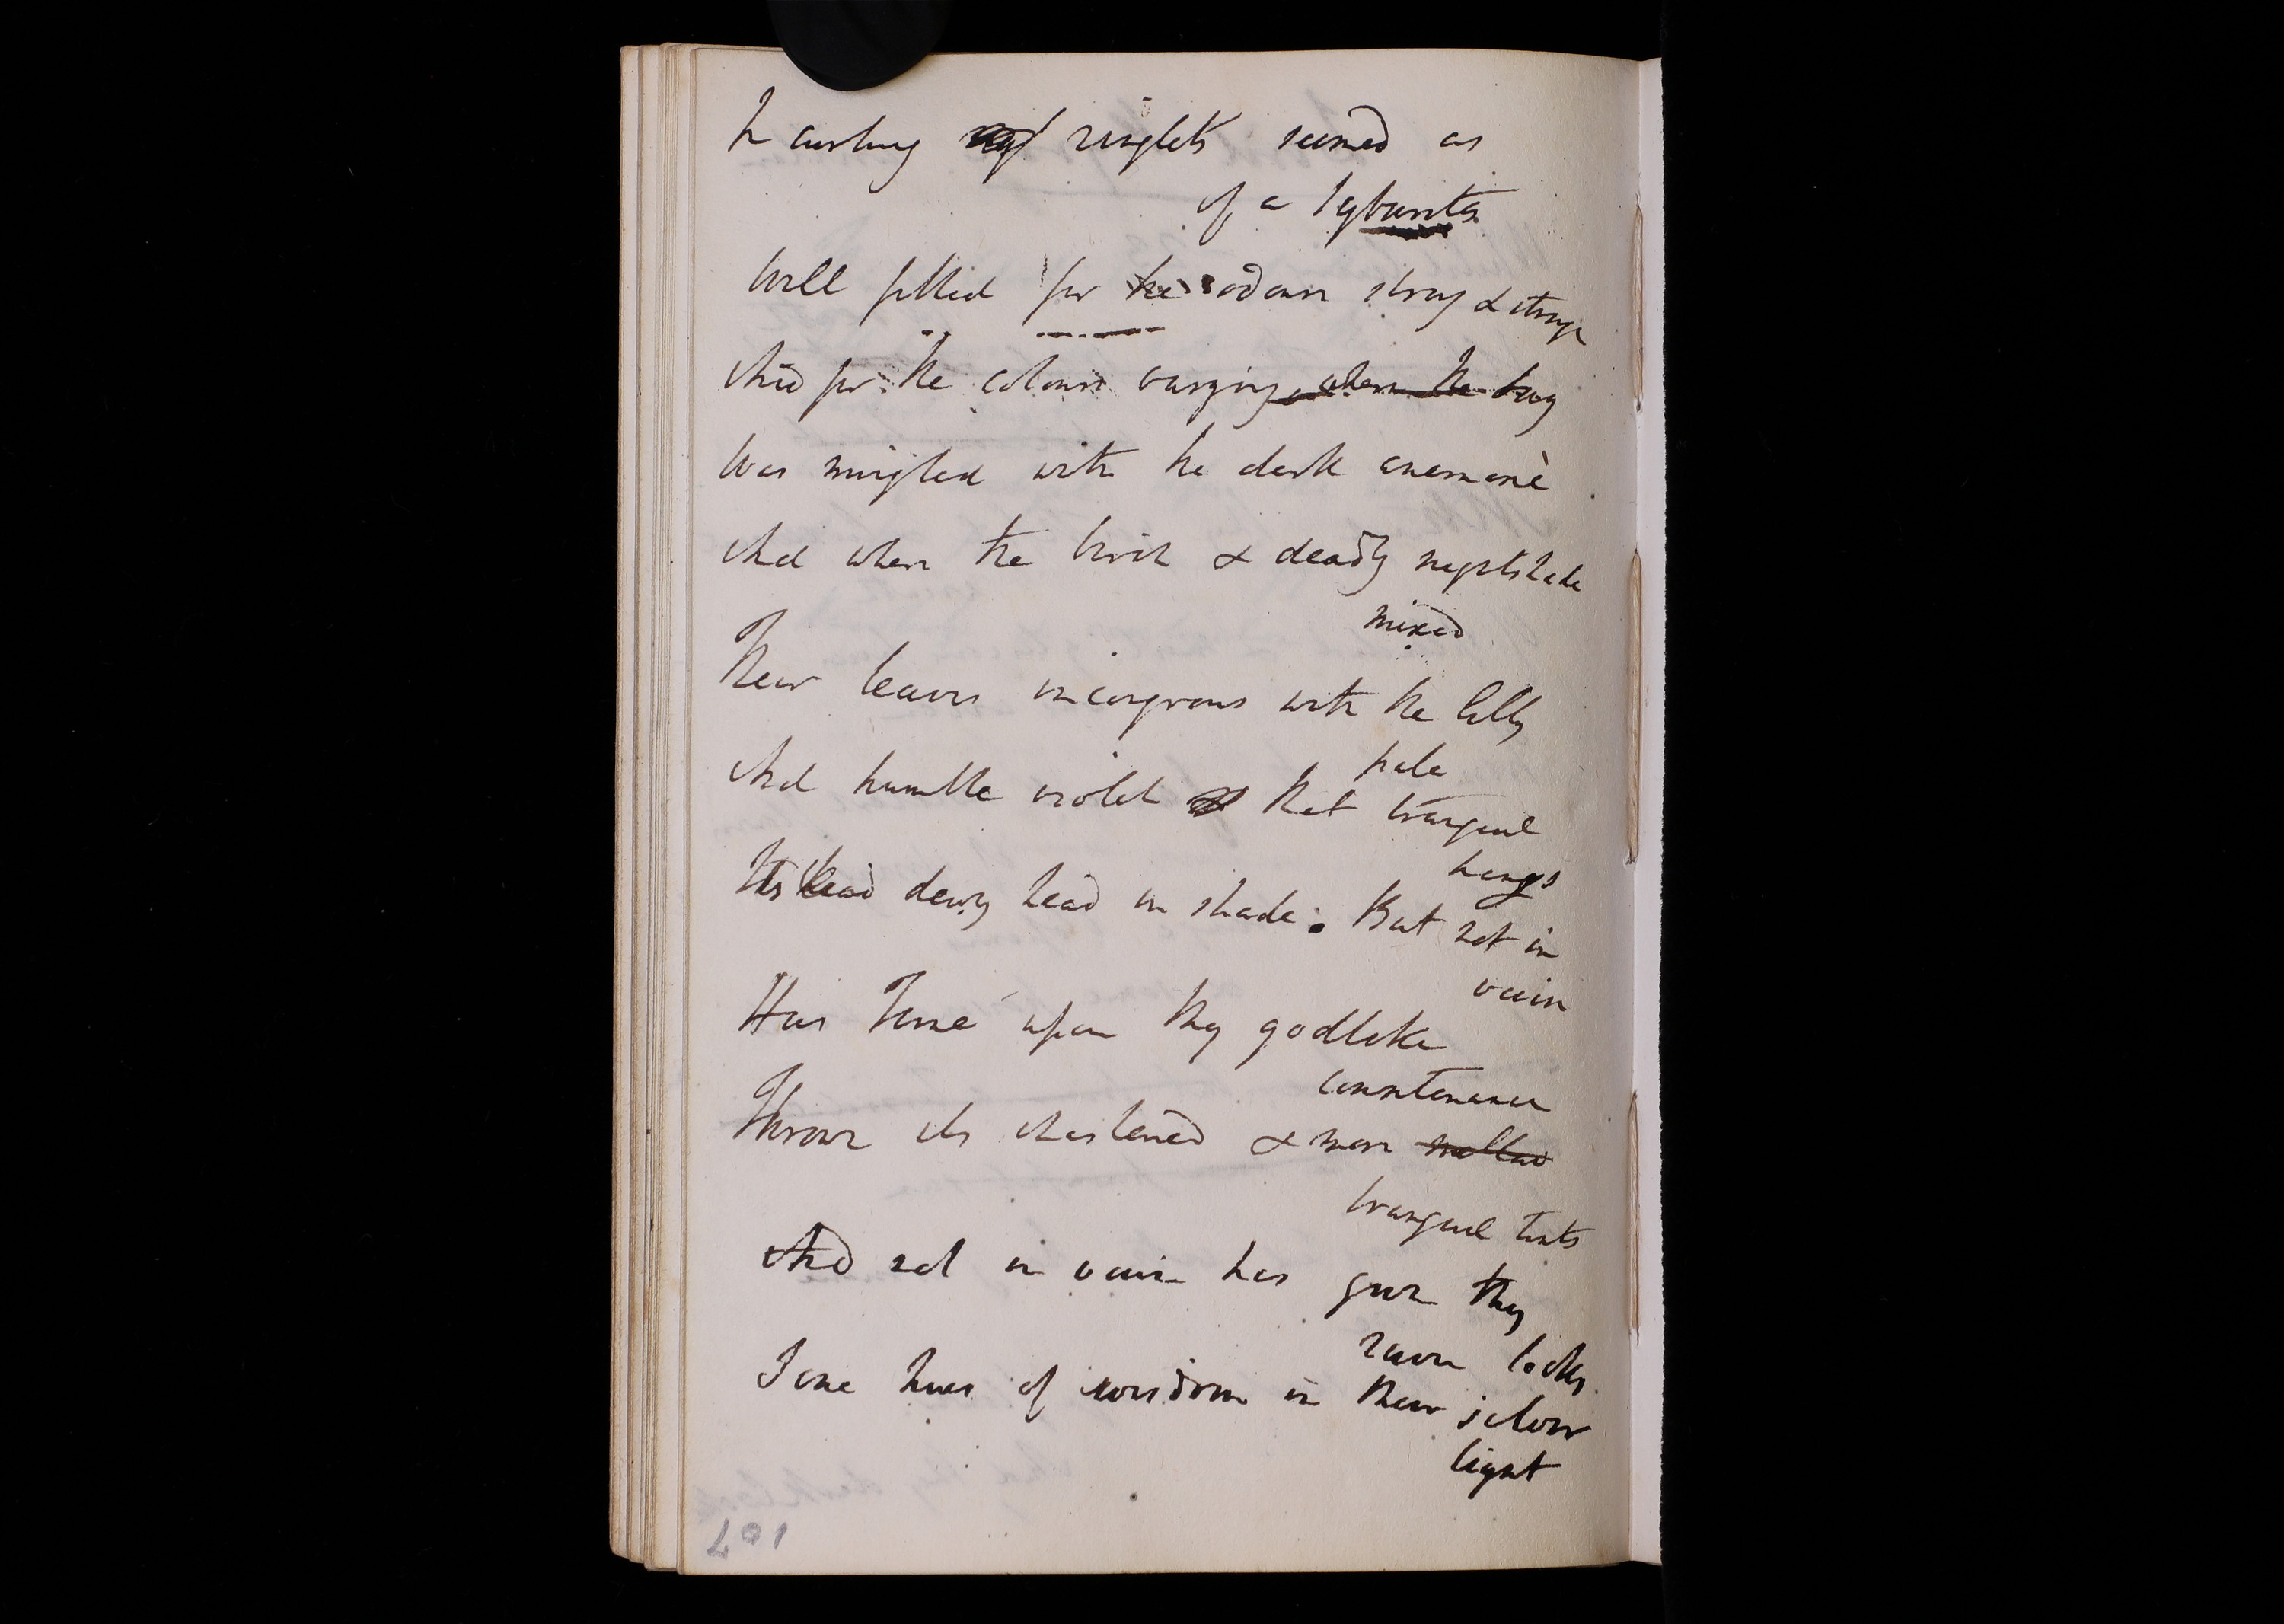 In curling ringlets seemed as
of a
Well fitted for the odours strong & strange
And for the colours varying, when the
Was mingled with the dark anemonè
And when the birch & deadly nightshade
mixed
Their leaves incongrous with the lilly
pale
And humble violet that tranquil
hangs
Its head dewy head in shade. But not in
vain
Has Time upon thy godlike
countenance
Thrown its chastened & more mellow
tranquil tints
And not in vain has given thy
raven locks
Some hues of wisdom in their
light
107